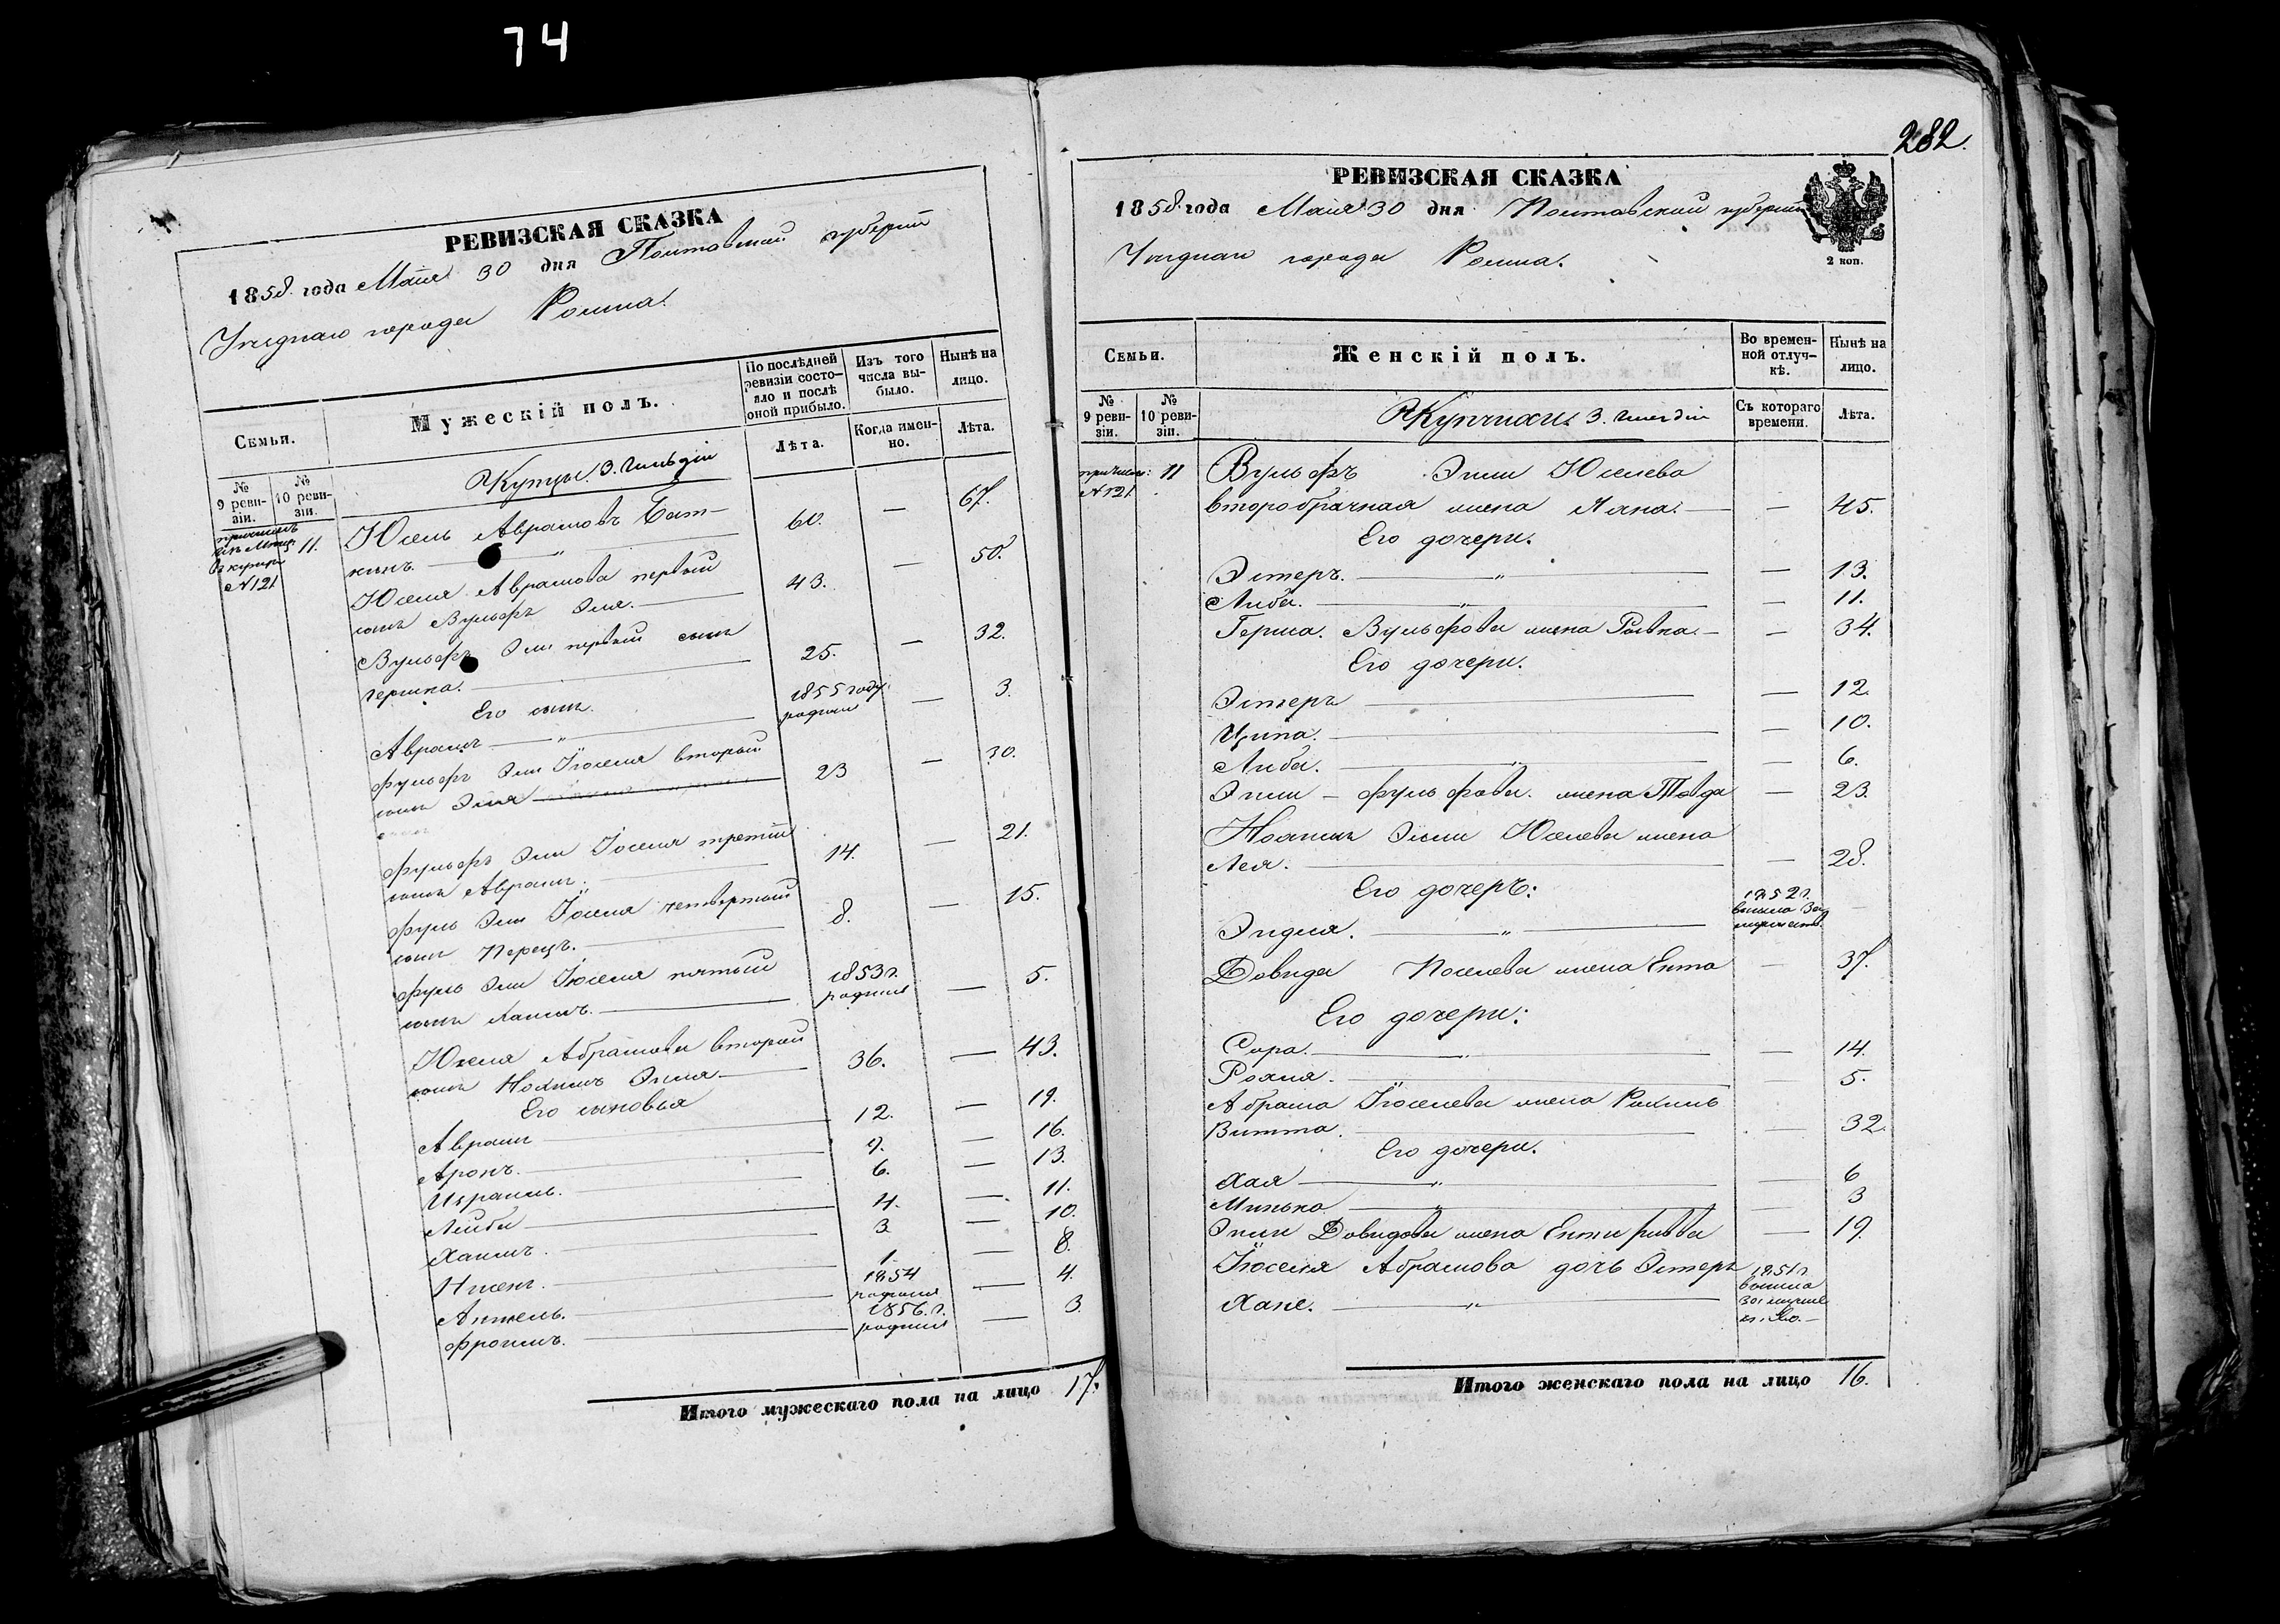 74
РЕВИЗСКАЯ СКАЗКА
1858 года Мая 30 дня Полтавской губернии
Уезднаго города Ромна.
Семьи.
Мужескій полъ.
По послѣдней ревизіи состояло и послѣ оной прибыло.
Изъ того числа выбыло.
Нынѣ на лицо.
№ 9 ревизіи.
№ 10 ревизіи.
Лѣта.
Когда именно.
Лѣта.
Купцы 3. Гильдіи
11. Юсель Аврамовъ 60. — 67.
№ 121
Юселя Аврамова первый
сынъ Вульфъ Эля. 43. — 50.
Вульфъ Эли первый сынъ
Гершка. 25. — 32.
Его сынъ.
Аврамъ — 1855 году родился — 3.
Фульфъ Эли Іоселя вторый
сынъ Эля 23 — 30.
Фульфъ Эли Іоселя третій
сынъ Аврамъ. 14. — 21.
Фуль Эли Іоселя четвертый
сынъ Перецъ. 8. — 15.
Фуль Эли Іоселя пятый
сынъ Хаимъ. 1853 г. родился — 5.
Юселя Абрамова вторый
сынъ Нохимъ Эмля 36. — 43.
Его сыновья
Аврамъ 12. — 19.
Аронъ. 9. — 16.
Израиль. 6. — 13.
Лейба 4. — 11.
Хаимъ. 3 — 10.
1. — 8.
1854 родился — 4.
Фроимъ. 1856. г. родился — 3.
Итого мужескаго пола на лицо 17.
282.
РЕВИЗСКАЯ СКАЗКА
1858 года Мая 30 дня Полтавской губерніи
2 коп.
Уезднаго города Ромна.
Семьи.
Женскій полъ.
Во временной отлучкѣ.
Нынѣ на лицо.
№ 9 ревизіи.
№ 10 ревизіи.
Съ котораго времени.
Лѣта.
Купчихи 3. Гильдіи
11 Вульфъ Эли Юселева
№ 121
второбрачная жена Хана. — 45.
Его дочери.
Эстеръ. — 13.
Либа. — 11.
Герша. Вульфова жена Ривка — 34.
Его дочери.
Эстеръ — 12.
Ципа. — 10.
Либа. — 6.
Эли — Фульфова жена — 23.
Нохимъ Юселева жена
Лея. — 28.
Его дочеръ:
Эидля. 1852 г. вышла за мужество —
Довида Иоселева жена Ента — 37.
Его дочери:
Сора. — 14.
Рохля. — 5.
Абрама Іоселева жена Рахиль
Витта. — 32.
Его дочери.
Хая — 6
Минька — 3
Довидова жена — 19.
Іоселя Абрамова дочь Эстеръ
Хане. 1851 г вышла
Итого женскаго пола на лицо 16.